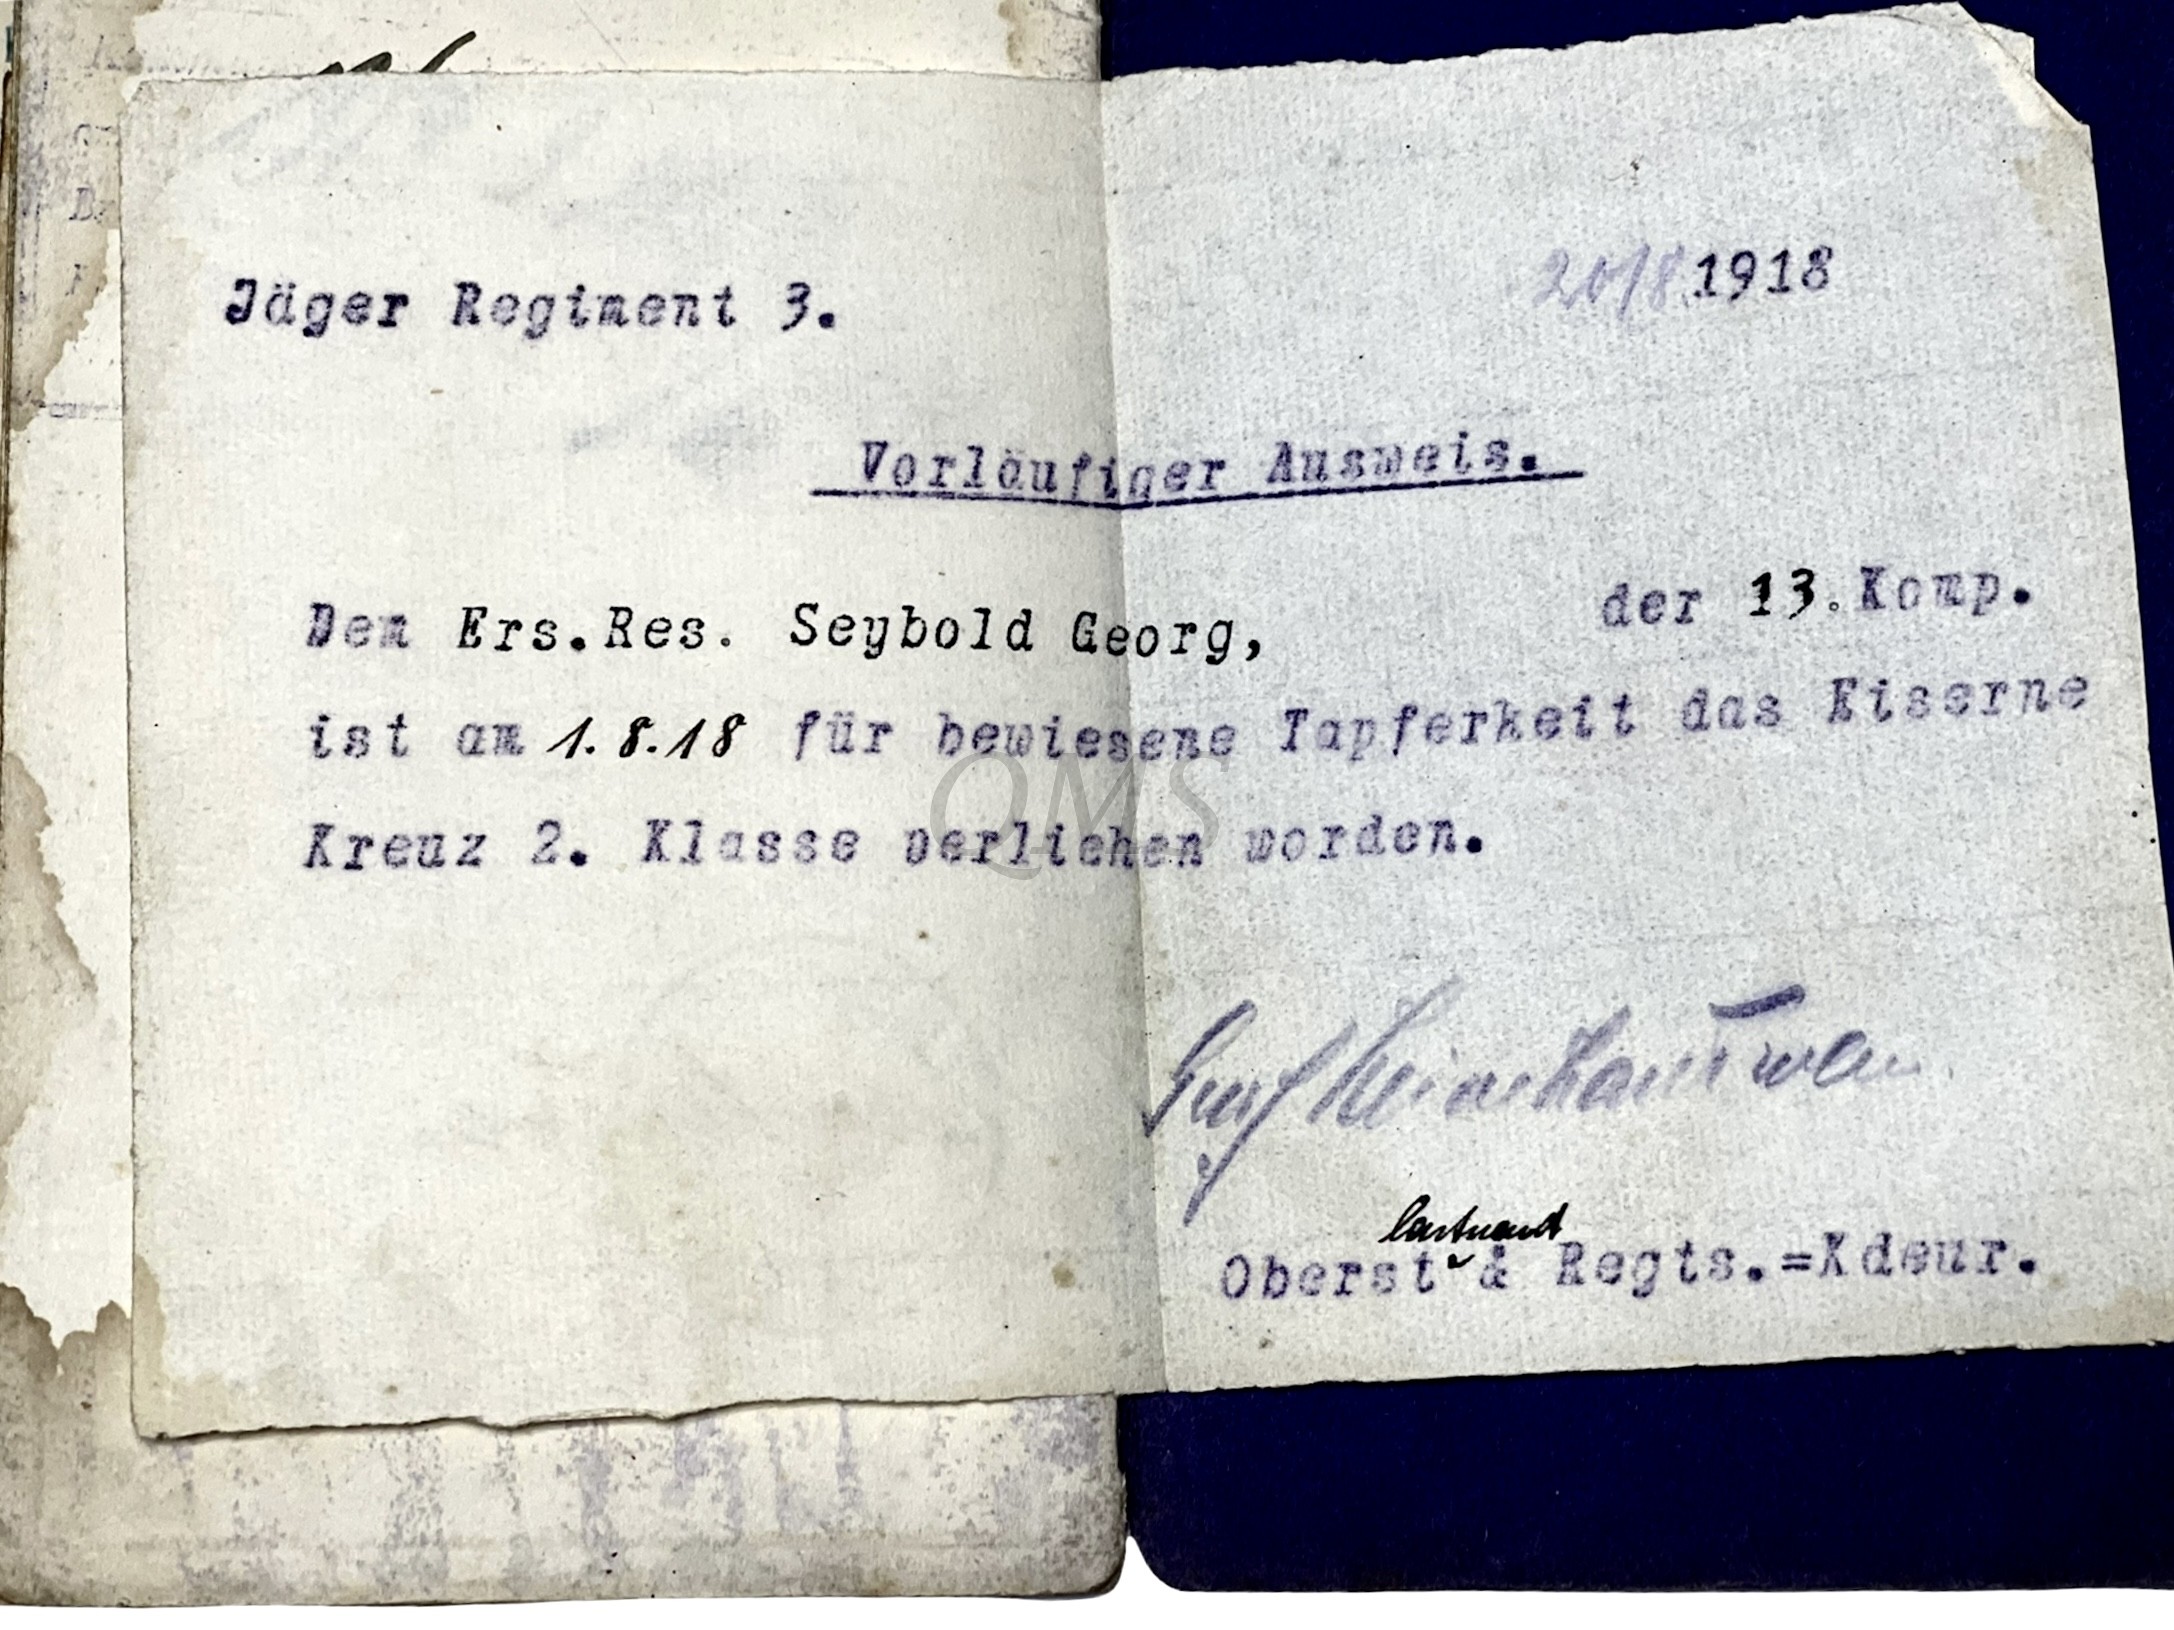 Jäger Regiment 3.
20/8.1918
Vorläufiger Ausweis.
Dem Ers.Res. Seybold Georg, der 13. Komp.
ist am 1.8.18 für bewiesene Tapferkeit das Eiserne
Kreuz 2. Klasse verliehen worden.
QMS
Graf
leutnant
Oberst & Regts.=Kdeur.